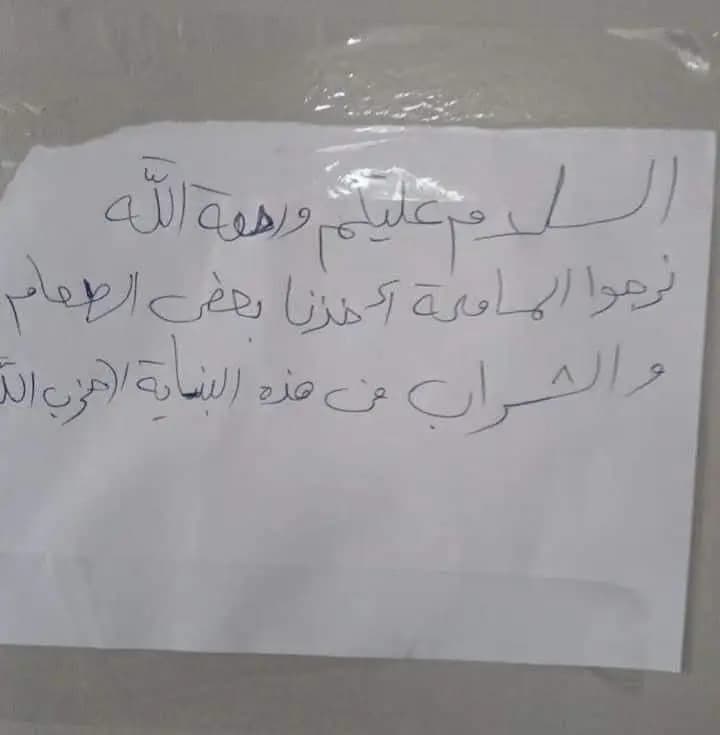 السلام عليكم ورحمة الله
نرجوا المسامحة أخذنا بعض الطعام
والشراب من هذه البناية